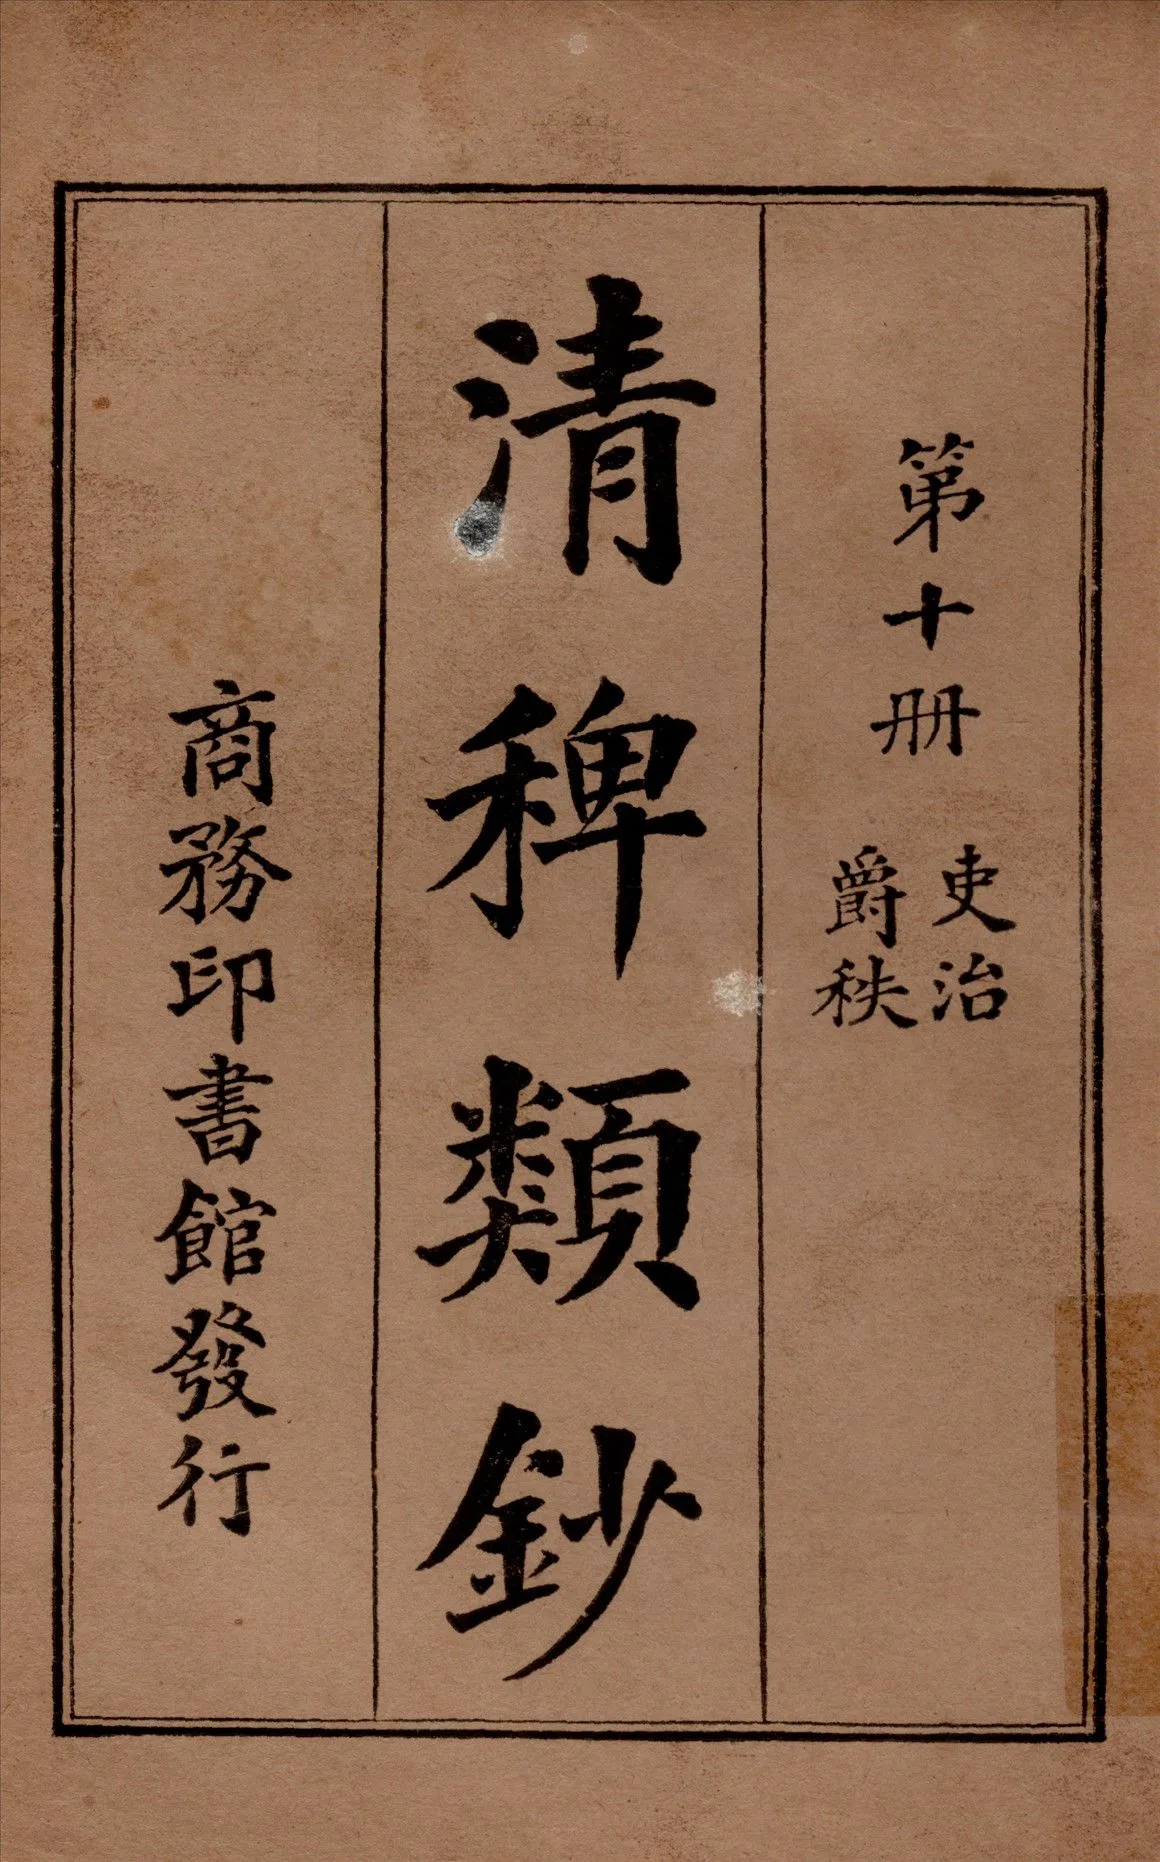 第十冊
吏治
爵秩
清稗類鈔
商務印書館發行